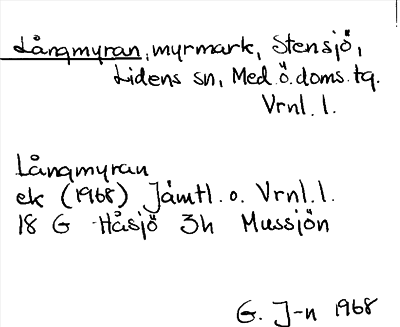 Långmyran, myrmark, Stensjö,
Lidens sn, Med.ö.doms.tg.
Vrnl.l.
Långmyran
ek (1968) Jämtl. o. Vrnl.l.
18 G Håsjö 3h Mussjön
G. J-n 1968